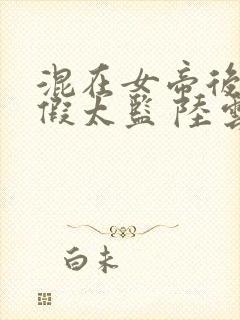 混在女帝後
假太監 陸雲
白未